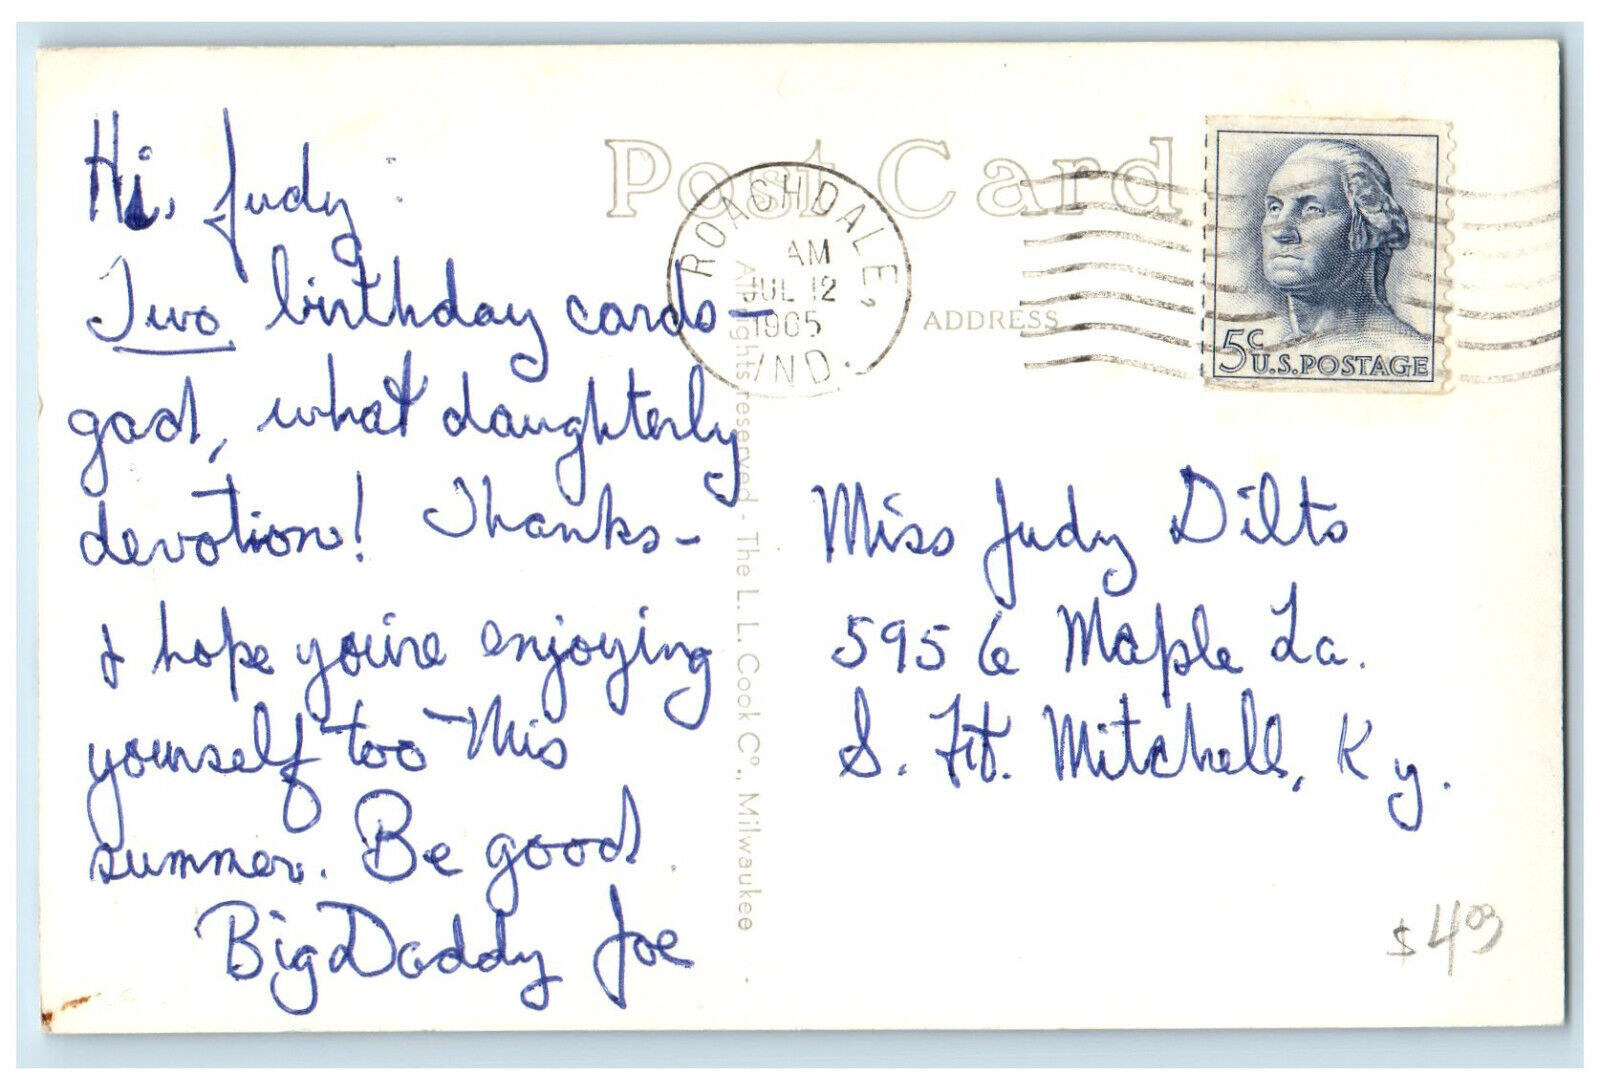 Hi, Judy:
Two birthday cards-
gad, what daughterly
devotion! Thanks-
I hope you're enjoying
yourself too this
summer. Be good.
Big Daddy Joe
Post Card
ROACHDALE,
AM
JUL 12
1965
IND.
ADDRESS
5c
U.S. POSTAGE
All rights reserved - The L. L. Cook Co., Milwaukee
Miss Judy Dilts
5956 Maple La.
S. Ft. Mitchell, Ky.
$4.03